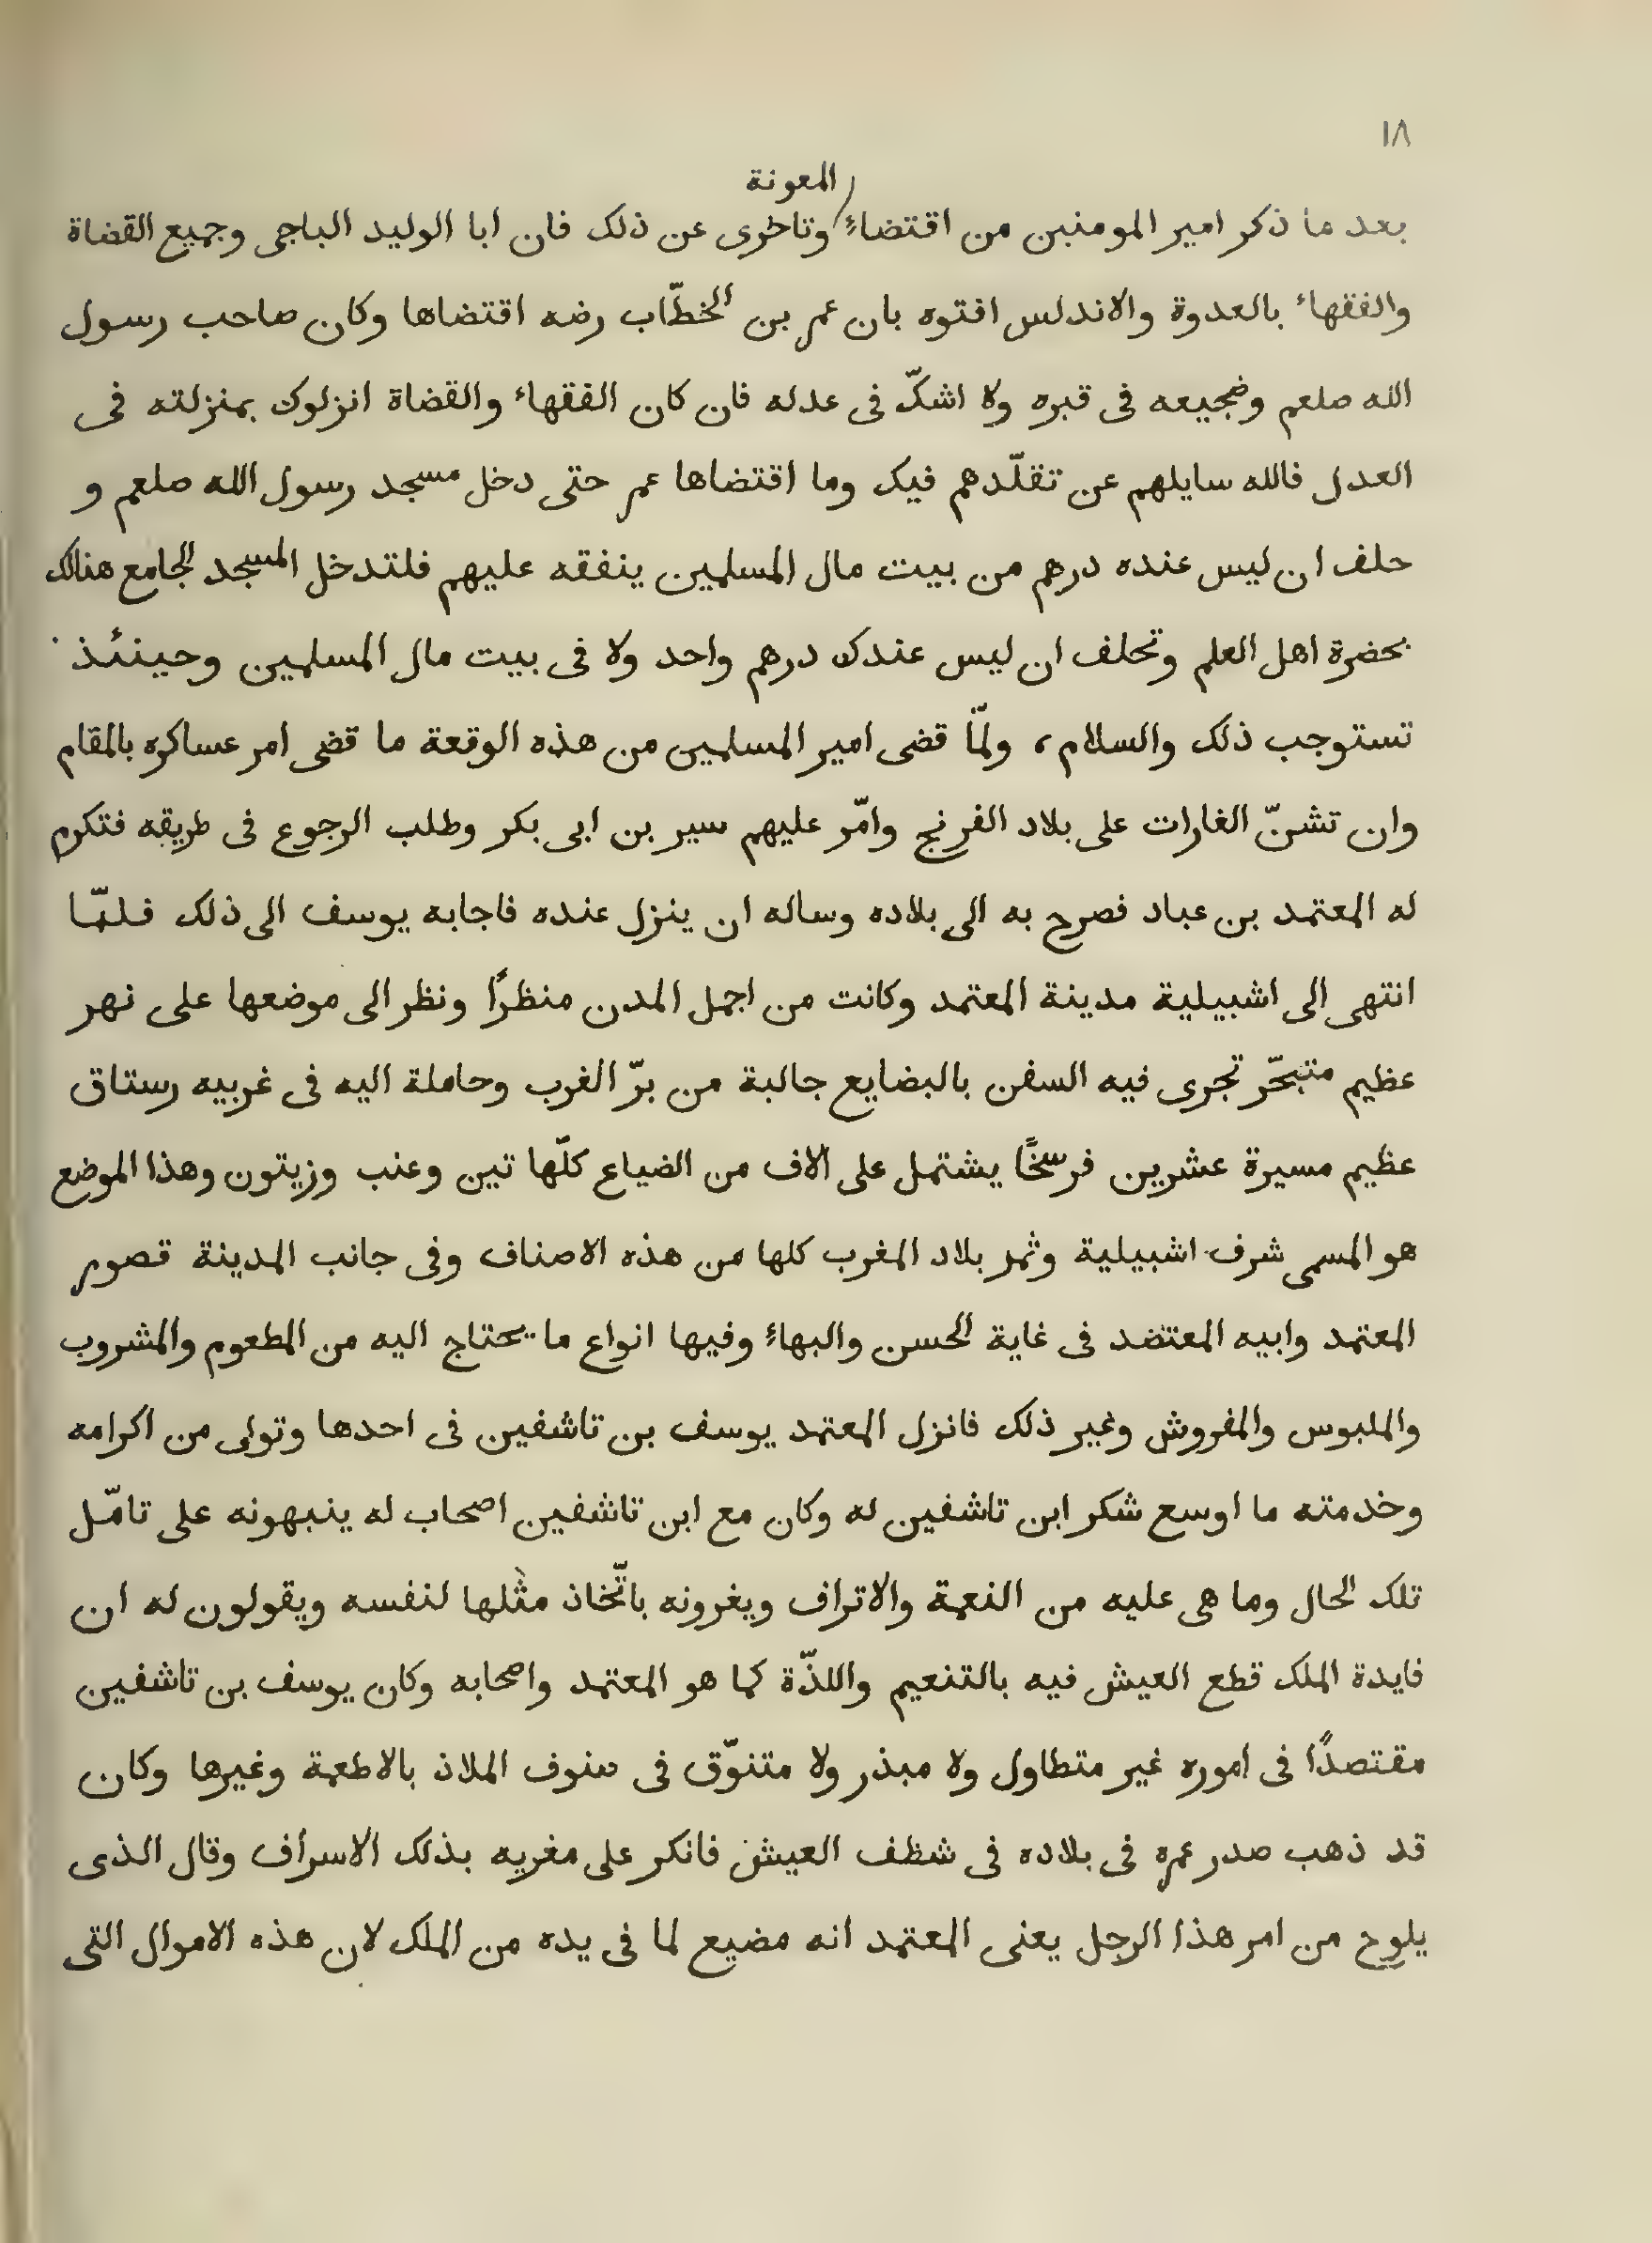 ١٨
المعونة
بعد ما ذكر امير المومنين من اقتضاءِ وتاخرى عن ذلك فان ابا الوليد الباجى وجميع القضاة
والفقهاء بالعدوة والاندلس افتوه بان عمر بن الخطّاب رضه اقتضاها وكان صاحب رسول
الله صلعم وضجيعه فى قبره ولا اشكّ فى عدله فان كان الفقهاء والقضاة انزلوك بمنزلته فى
العدل فالله سايلهم عن تقلّدهم فيك وما اقتضاها عمر حتى دخل مسجد رسول الله صلعم و
حلف ان ليس عنده درهم من بيت مال المسلمين ينفقه عليهم فلتدخل المسجد الجامع هنالك
بحضرة اهل العلم وتحلف ان ليس عندك درهم واحد ولا فى بيت مال المسلمين وحينئذ
تستوجب ذلك والسلام، ولمّا قضى امير المسلمين من هذه الوقعة ما قضى امر عساكره بالمقام
وان تشنّ الغارات على بلاد الفرنج وامّر عليهم سير بن ابى بكر وطلب الرجوع فى طريقه فتكرم
له المعتمد بن عباد فصرح به الى بلاده وساله ان ينزل عنده فاجابه يوسف الى ذلك فلمّا
انتهى الى اشبيلية مدينة المعتمد وكانت من اجمل المدن منظرًا ونظر الى موضعها على نهر
عظيم متبحّر تجرى فيه السفن بالبضايع جالبة من برّ الغرب وحاملة اليه فى غربيه رستاق
عظيم مسيرة عشرين فرسخًا يشتمل على الاف من الضياع كلّها تين وعنب وزيتون وهذا الموضع
هو المسمى شرف اشبيلية وثمر بلاد المغرب كلها من هذه الاصناف وفى جانب المدينة قصور
المعتمد وابيه المعتضد فى غاية الحسن والبهاءِ وفيها انواع ما يحتاج اليه من المطعوم والمشروب
والملبوس والمفروش وغير ذلك فانزل المعتمد يوسف بن تاشفين فى احدها وتولى من اكرامه
وخدمته ما اوسع شكر ابن تاشفين له وكان مع ابن تاشفين اصحاب له ينبهونه على تامّل
تلك الحال وما هى عليه من النعمة والاتراف ويغرونه باتّخاذ مثلها لنفسه ويقولون له ان
فايدة الملك قطع العيش فيه بالتنعيم واللذّة كما هو المعتمد واصحابه وكان يوسف بن تاشفين
مقتصدًا فى اموره غير متطاول ولا مبذر ولا متنوّق فى صنوف الملاذ بالاطعمة وغيرها وكان
قد ذهب صدر عمره فى بلاده فى شظف العيش فانكر على مغريه بذلك الاسراف وقال الذى
يلوح من امر هذا الرجل يعنى المعتمد انه مضيع لما فى يده من الملك لان هذه الاموال التى